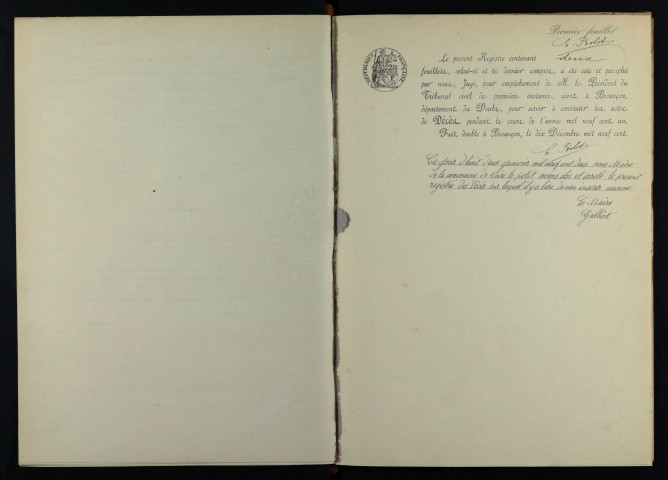 Premier feuillet
Le présent Registre contenant deux
feuillets, celui-ci et le dernier compris, a été coté et paraphé
par nous, Juge, pour empêchement de M. le Président du
Tribunal civil de première instance, séant à Besançon,
département du Doubs, pour servir à constater les actes
de Décès pendant le cours de l'année mil neuf cent un.
Fait double à Besançon, le dix Décembre mil neuf cent.
RÉPUBLIQUE FRANÇAISE
Ce jour d'huit deux janvier mil neuf cent deux nous Maire
de la commune de le petit avons clos et arrêté le présent
registre des Décès sur lequel il y a lieu de non insérer aucune
Le Maire